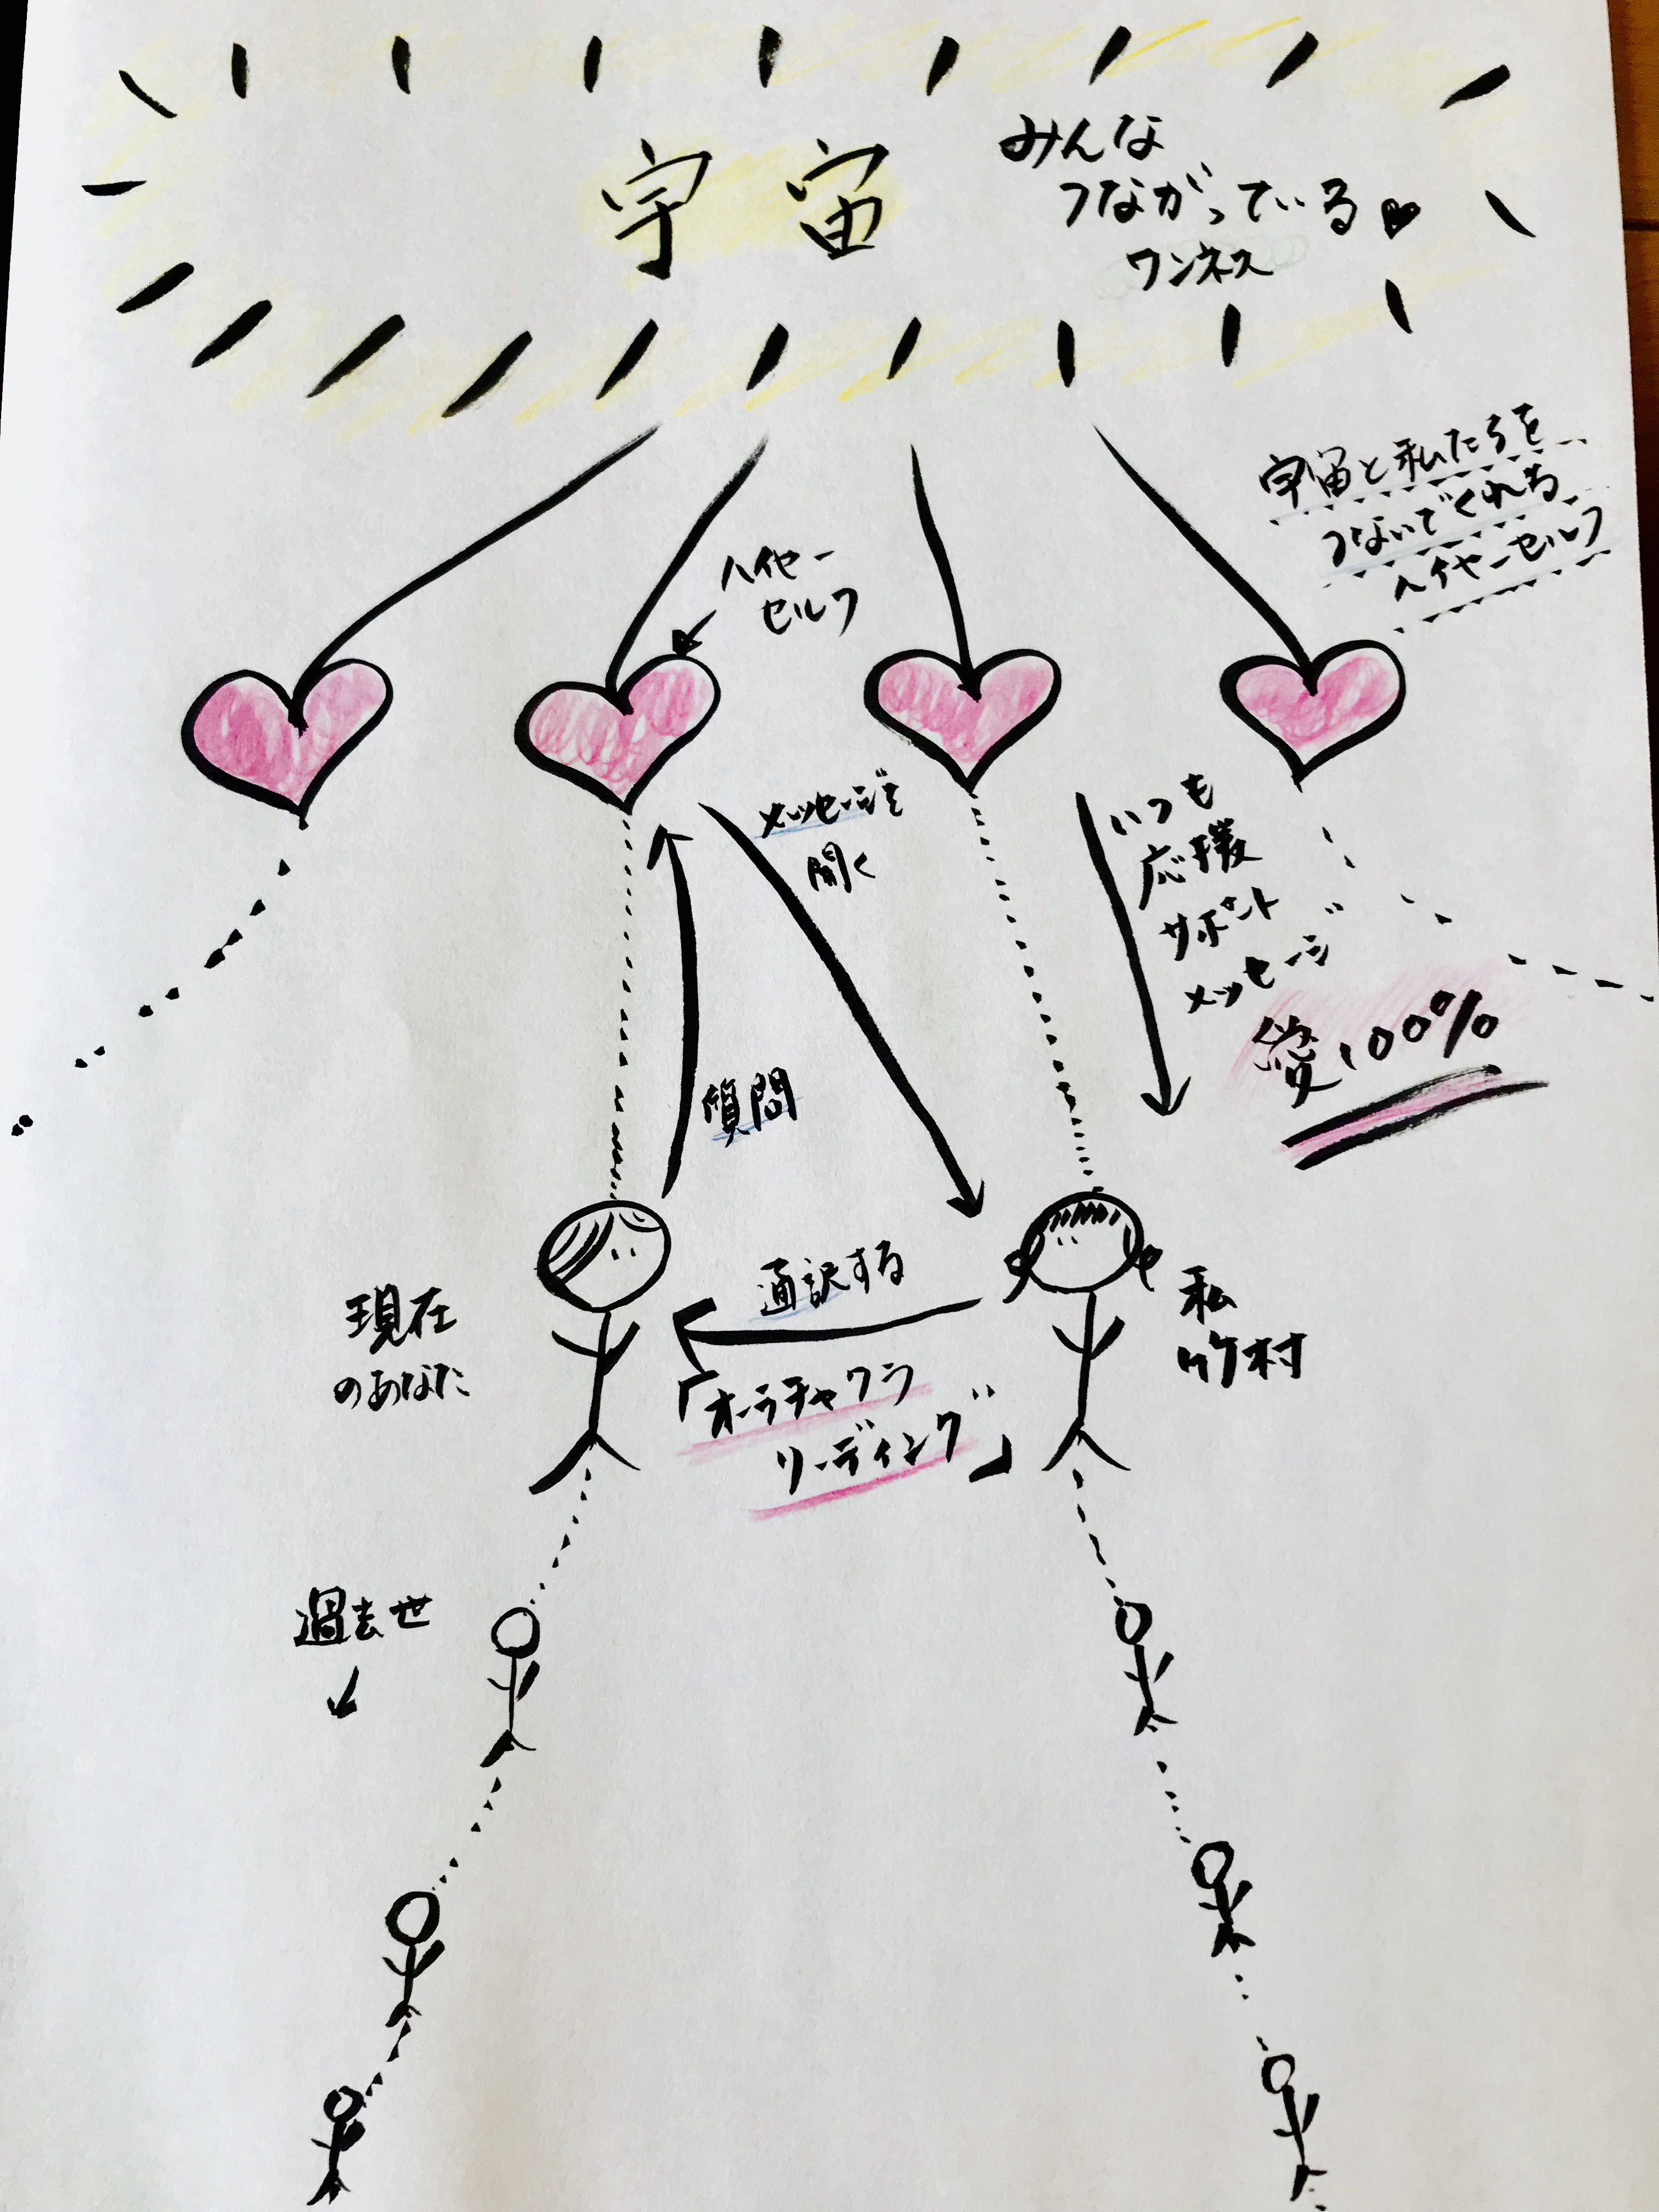 宇宙
みんな
つながっている♥
ワンネス
宇宙と私たちを
つないでくれる
ハイヤーセルフ
ハイヤー
セルフ
メッセージを
聞く
いつも
応援
サポート
メッセージ
愛100%
質問
通訳する
「オーラチャクラ
リーディング」
現在
のあなた
私
竹村
過去世